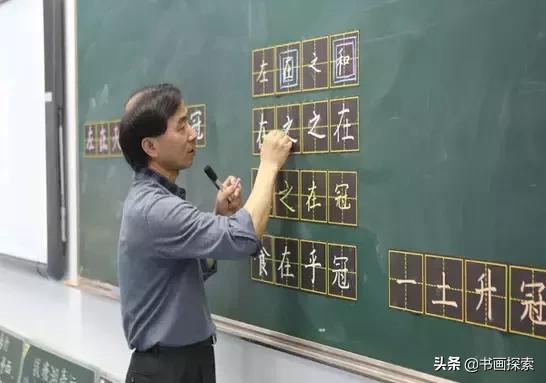 左在之和
在之之在
之在冠
食在乎冠
左在
冠
一土升冠
头条 @书画探索